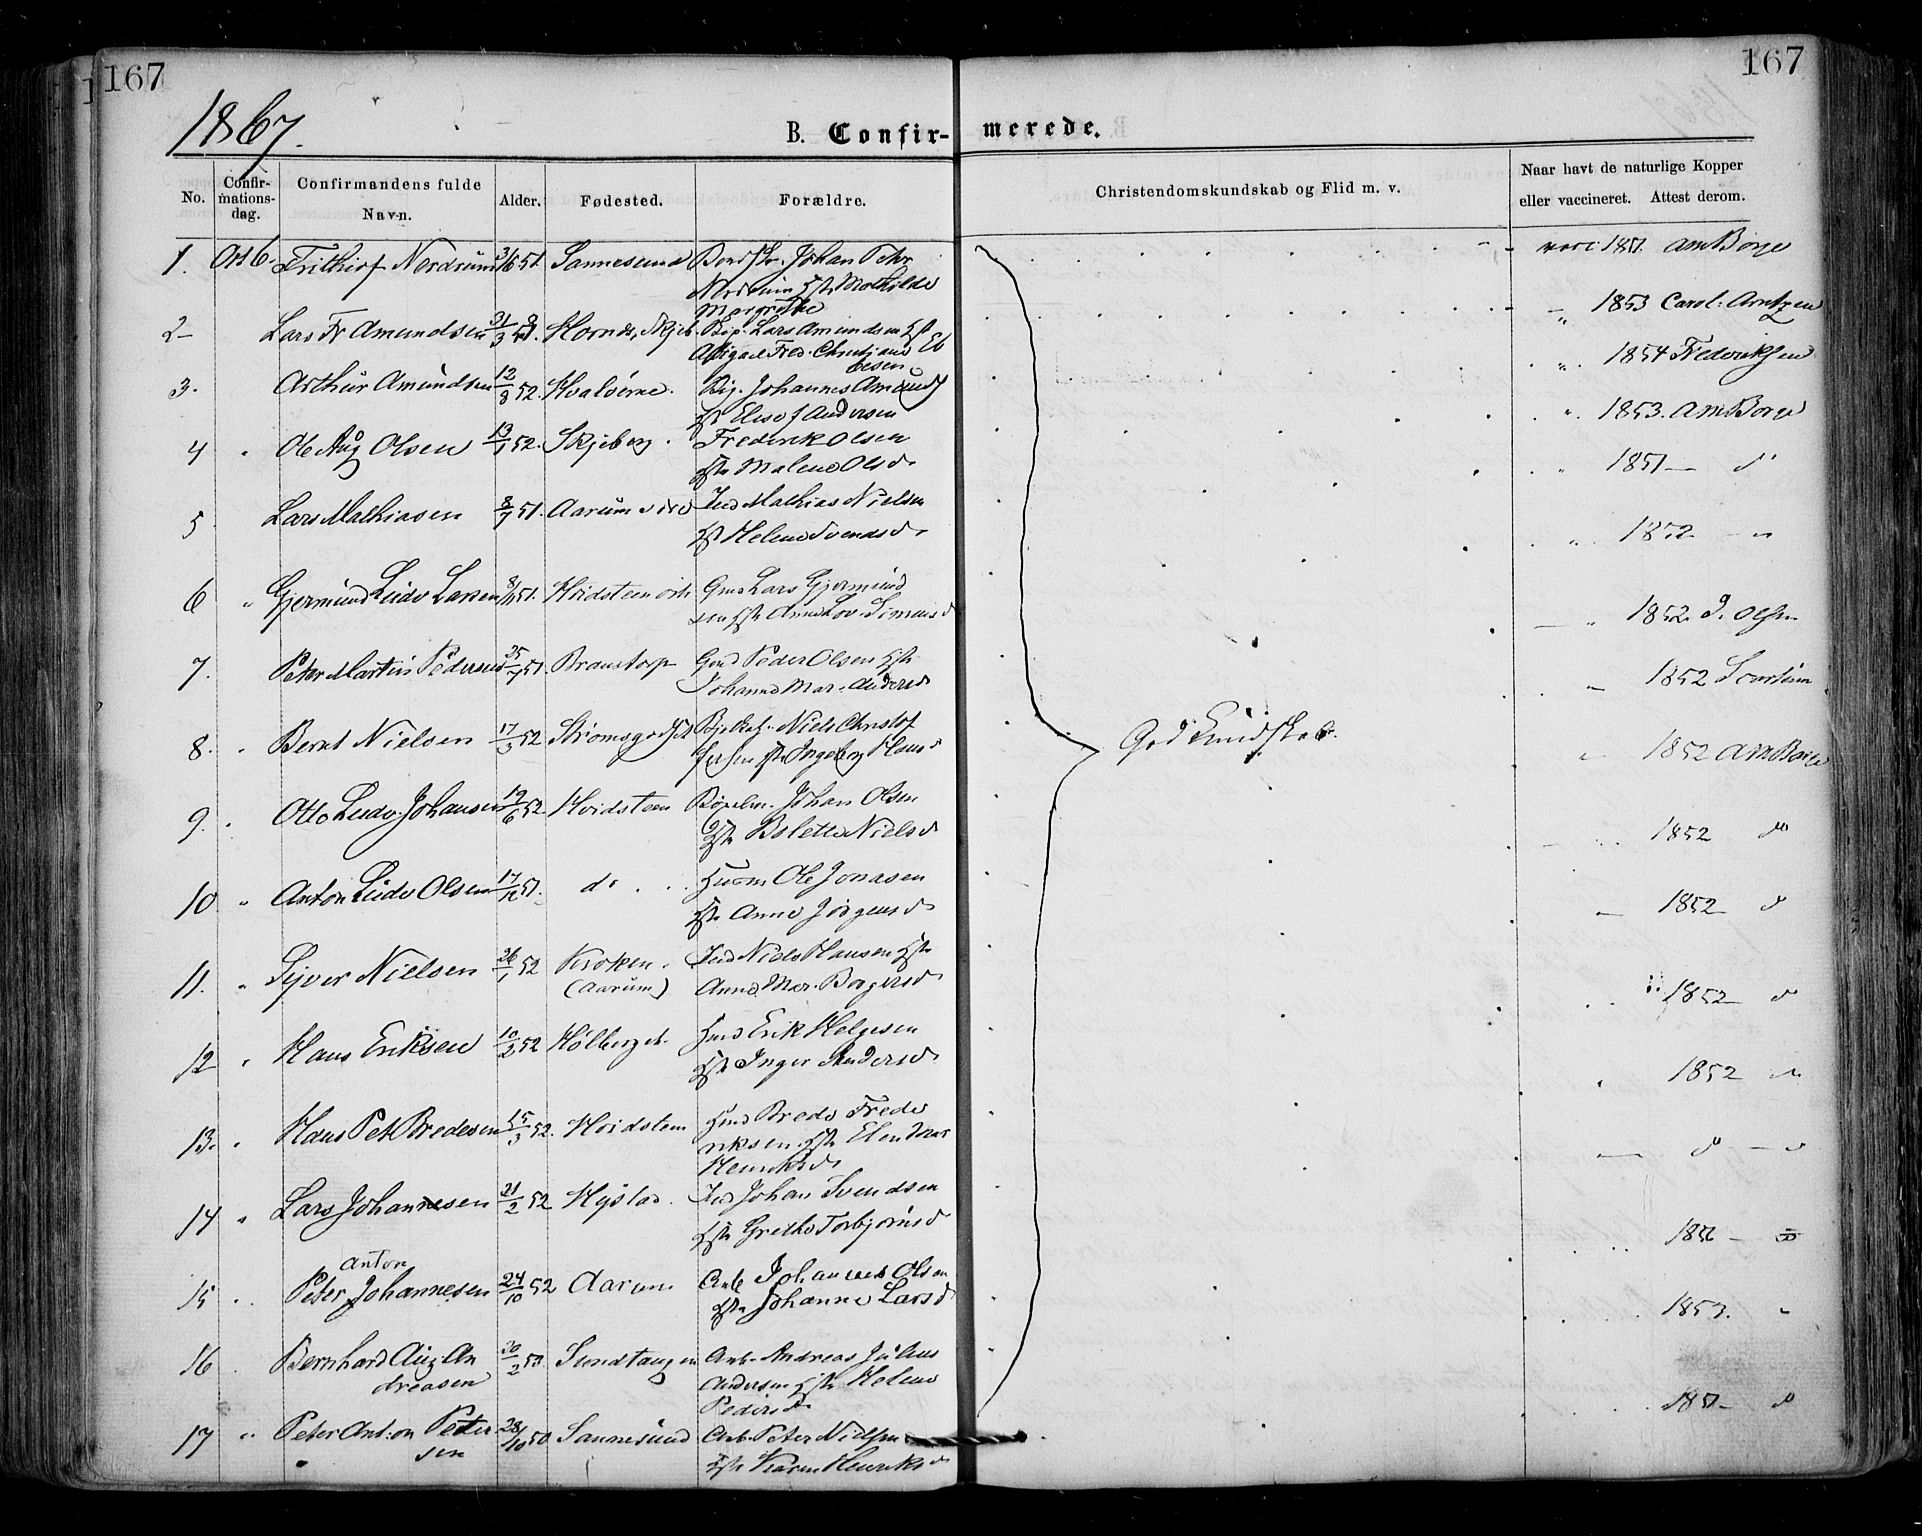 167
167
1867.
B. Confir-
merede.
No.
Confir-
mations-
dag.
Confirmandens fulde
Navn.
Alder.
Fødested.
Forældre.
Christendomskundskab og Flid m. v.
Naar havt de naturlige Kopper
eller vaccineret. Attest derom.
1. Oct 6. Frithiof Nordrum 51. Sannesund Johan Petr
Nordrum Mathilde
Margrethe
vacc 1851. AmBorge
2 Lars Fr Amundsen 31/3 51. Hornes, Skjeb. Lars Amundsen Hst
Abigael Fred. Christiane Eb
besen
" 1853 Carol. Arntzen
3. Arthur Amundsen 12/8 52. Hvalöerne. Johannes Amunds
Hst Andersen
" 1854 Frederiksen
4 " Ole Aug Olsen 13/1 52. Skjeberg. Frederik Olsen
Hst Malene Olsd.
" 1853. AmBorge
5 Lars Mathiasen 8/7 51. Aarum Ind Mathias Nielsen
Hst Helene Svendsd.
" 1851 — d°
6 " Gjermund Ludv Larsen 51. Høidsteen Gmd Lars Gjermund
sen Hst Anne Lov. Simensd
" 1872 — "
7. Peter Martin Pedersen 25/7 51. Branstorp Gmd Peder Olsen Hst
Johanne Mar. Andersd
" 1852 J. Olsen
8. " Bernt Nielsen 17/3 52 Strømsgodset Niels Christof
fersen Hst Ingeborg Hansd
1852
God Kundskab.
9. " Otto Ludv. Johansen 19/6 52 Høidsteen Johan Olsen
Hst Bolette Nielsd
" 1852 AmBorge
10 " Anton Ludv Olsen 17/12 51. d° Husm Ole Jonasen
Hst Anne Jørgensd
1852 d°
11. " Sjver Nielsen 26/1 52 Kroken Ind Niels Hansen Hst
(Aarum) Anne Mar. Borgersd
1852 d
12 " Hans Eriksen 10/2 52 Hølberget. Erik Helgesen
Hst Inger Andersd.
1852 d
13. " Hans Pet Bredesen 15/3 52. Høidsteen Brede Frede
riksen Hst
Henriksd.
1852 "
14 " Lars Johannesen 21/2 52 Hystad. Ind Johan Svendsen
Hst Grethe Torbjørnsd
d —
Anton
15 " Peter Johannesen 24/10 52 Aarum Arb Johannes Olsen
Hst Johanne Larsd
185
16 Bernhard Aug An 20/2 53. Sundtangen Arb. Andreas Julius
dreasen Andersen Hst Helene
Pedersd
1853. "
17 " Peter Anton Peter 28/10 50 Sannesund Arb. Peter Nielsen
sen Hst Karen Henriksd
1851 d